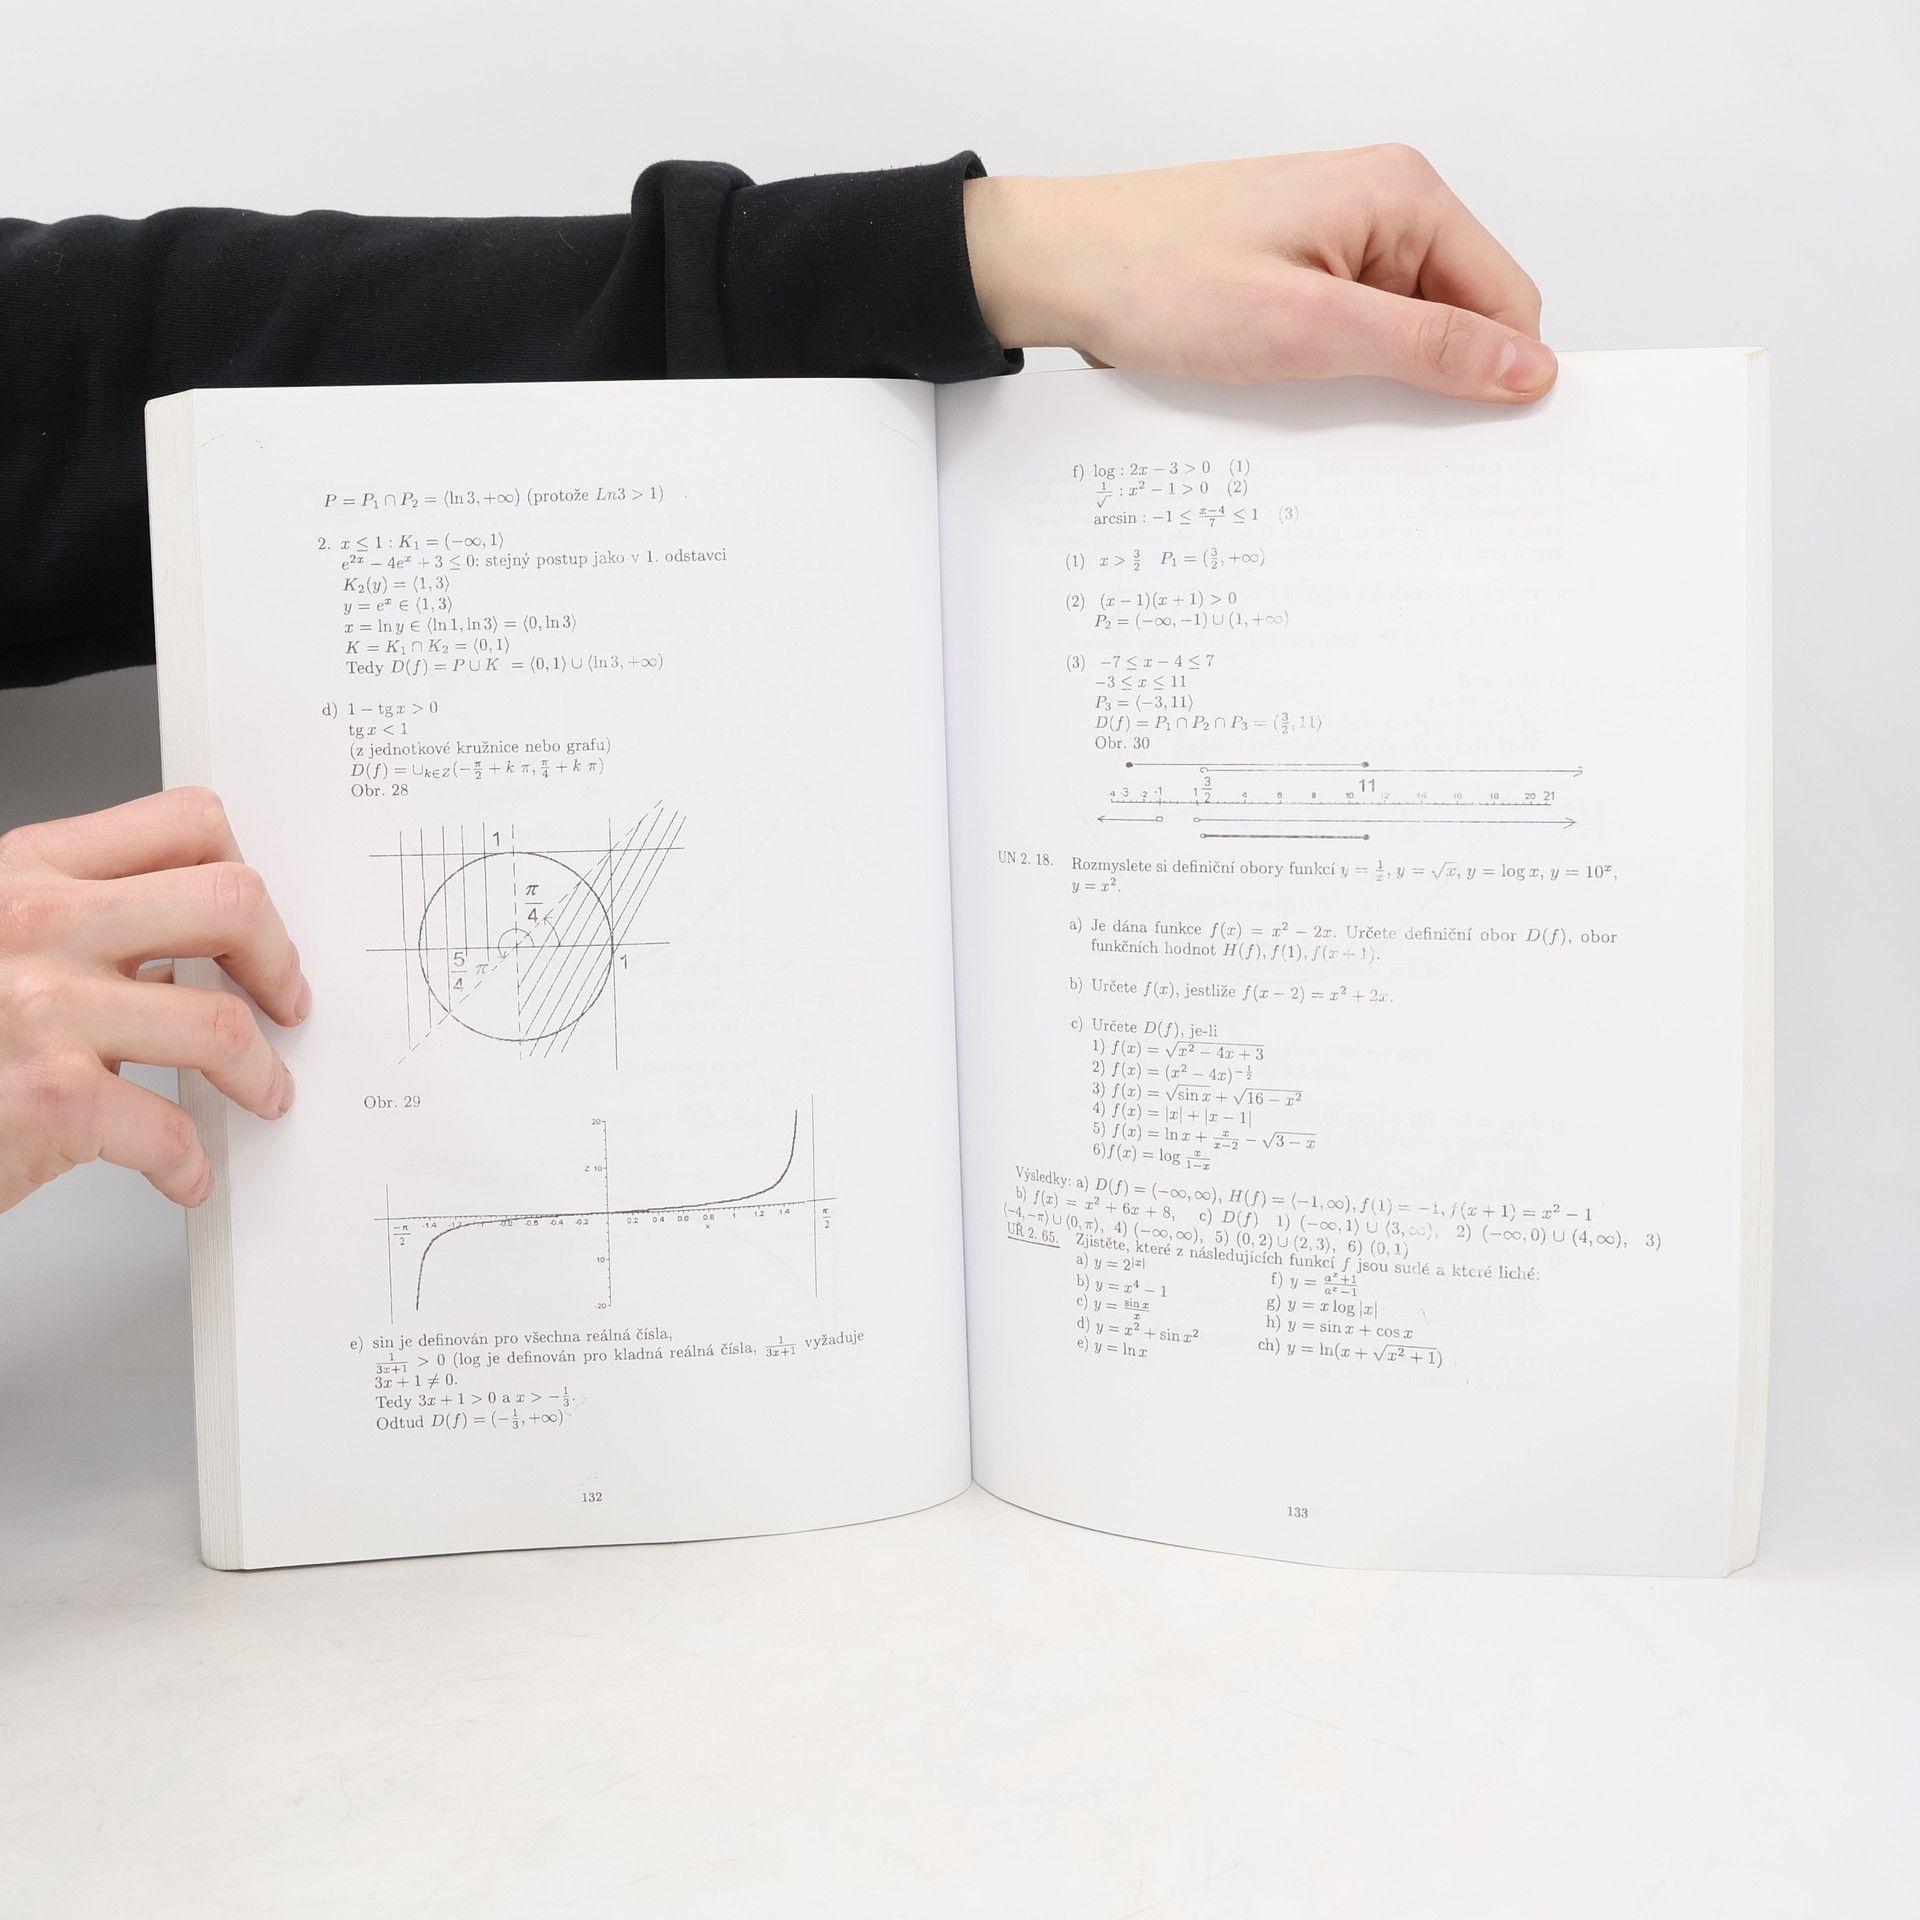 P = P₁ ∩ P₂ = ⟨ln 3, +∞) (protože Ln3 > 1)
2. x ≤ 1 : K₁ = (−∞, 1⟩
e²ˣ − 4eˣ + 3 ≤ 0: stejný postup jako v 1. odstavci
K₂(y) = ⟨1, 3⟩
y = eˣ ∈ ⟨1, 3⟩
x = ln y ∈ ⟨ln 1, ln 3⟩ = ⟨0, ln 3⟩
K = K₁ ∩ K₂ = ⟨0, 1⟩
Tedy D(f) = P ∪ K = ⟨0, 1⟩ ∪ ⟨ln 3, +∞)
d) 1 − tg x > 0
tg x < 1
(z jednotkové kružnice nebo grafu)
D(f) = ∪k∈Z(−π/2 + k π, π/4 + k π)
Obr. 28
1
π/4
5/4 π
1
Obr. 29
20
z 10
-π/2 -1.4 -1.2 -1 -0.8 -0.6 -0.4 -0.2 0 0.2 0.4 0.6 0.8 1 1.2 1.4 π/2
x
-10
-20
e) sin je definován pro všechna reálná čísla,
1/(3x+1) > 0 (log je definován pro kladná reálná čísla, 1/(3x+1) vyžaduje
3x + 1 ≠ 0.
Tedy 3x + 1 > 0 a x > −1/3.
Odtud D(f) = (−1/3, +∞)
132
f) log : 2x − 3 > 0 (1)
1/√ : x² − 1 > 0 (2)
arcsin : −1 ≤ (x−4)/7 ≤ 1 (3)
(1) x > 3/2 P₁ = (3/2, +∞)
(2) (x − 1)(x + 1) > 0
P₂ = (−∞, −1) ∪ (1, +∞)
(3) −7 ≤ x − 4 ≤ 7
−3 ≤ x ≤ 11
P₃ = ⟨−3, 11⟩
D(f) = P₁ ∩ P₂ ∩ P₃ = (3/2, 11⟩
Obr. 30
-4 -3 -2 -1 1 3/2 4 6 8 10 11 12 14 16 18 20 21
UN 2. 18. Rozmyslete si definiční obory funkcí y = 1/x, y = √x, y = log x, y = 10ˣ,
y = x².
a) Je dána funkce f(x) = x² − 2x. Určete definiční obor D(f), obor
funkčních hodnot H(f), f(1), f(x + 1).
b) Určete f(x), jestliže f(x − 2) = x² + 2x.
c) Určete D(f), je-li
1) f(x) = √(x² − 4x + 3)
2) f(x) = (x² − 4x)^(−1/2)
3) f(x) = √(sin x) + √(16 − x²)
4) f(x) = |x| + |x − 1|
5) f(x) = ln x + x/(x−2) − √(3 − x)
6)f(x) = log x/(1−x)
Výsledky: a) D(f) = (−∞, ∞), H(f) = ⟨−1, ∞), f(1) = −1, f(x + 1) = x² − 1
b) f(x) = x² + 6x + 8, c) D(f) 1) (−∞, 1⟩ ∪ ⟨3, ∞), 2) (−∞, 0) ∪ (4, ∞), 3)
⟨−4, −π⟩ ∪ ⟨0, π⟩, 4) (−∞, ∞), 5) (0, 2) ∪ (2, 3⟩, 6) (0, 1)
UŘ 2. 65. Zjistěte, které z následujících funkcí f jsou sudé a které liché:
a) y = 2^|x|
b) y = x⁴ − 1
c) y = sin x/x
d) y = x² + sin x²
e) y = ln x
f) y = (aˣ+1)/(aˣ−1)
g) y = x log |x|
h) y = sin x + cos x
ch) y = ln(x + √(x² + 1))
133